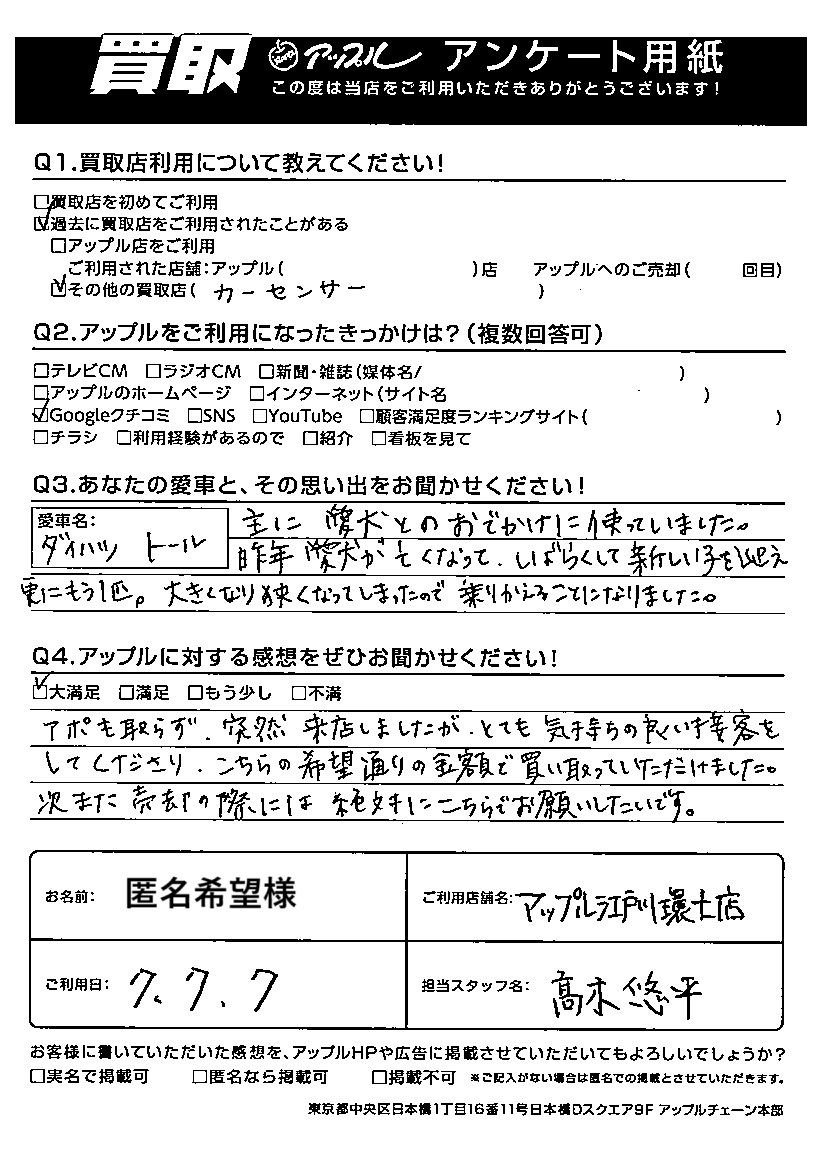 買取 アップル アンケート用紙
この度は当店をご利用いただきありがとうございます!
Q1.買取店利用について教えてください!
□買取店を初めてご利用
☑過去に買取店をご利用されたことがある
□アップル店をご利用
ご利用された店舗:アップル( )店 アップルへのご売却( 回目)
☑その他の買取店( カーセンサー )
Q2.アップルをご利用になったきっかけは?(複数回答可)
□テレビCM □ラジオCM □新聞・雑誌(媒体名/ )
□アップルのホームページ □インターネット(サイト名 )
☑Googleクチコミ □SNS □YouTube □顧客満足度ランキングサイト( )
□チラシ □利用経験があるので □紹介 □看板を見て
Q3.あなたの愛車と、その思い出をお聞かせください!
愛車名:
ダイハツ トール
主に 愛犬とのおでかけに使っていました。
昨年 愛犬が亡くなって、しばらくして新しい子を迎え
更にもう1匹。大きくなり狭くなってしまったので 乗りかえることになりました。
Q4.アップルに対する感想をぜひお聞かせください!
☑大満足 □満足 □もう少し □不満
アポも取らず、突然 来店しましたが、とても 気持ちの良い接客を
してくださり、こちらの希望通りの金額で買い取っていただけました。
次また 売却の際には 絶対にこちらでお願いしたいです。
お名前: 匿名希望様
ご利用店舗名: アップル江戸川環七店
ご利用日: 7.7.7
担当スタッフ名: 髙木 悠平
お客様に書いていただいた感想を、アップルHPや広告に掲載させていただいてもよろしいでしょうか?
□実名で掲載可 □匿名なら掲載可 □掲載不可 ※ご記入がない場合は匿名での掲載とさせていただきます。
東京都中央区日本橋1丁目16番11号日本橋Dスクエア9F アップルチェーン本部